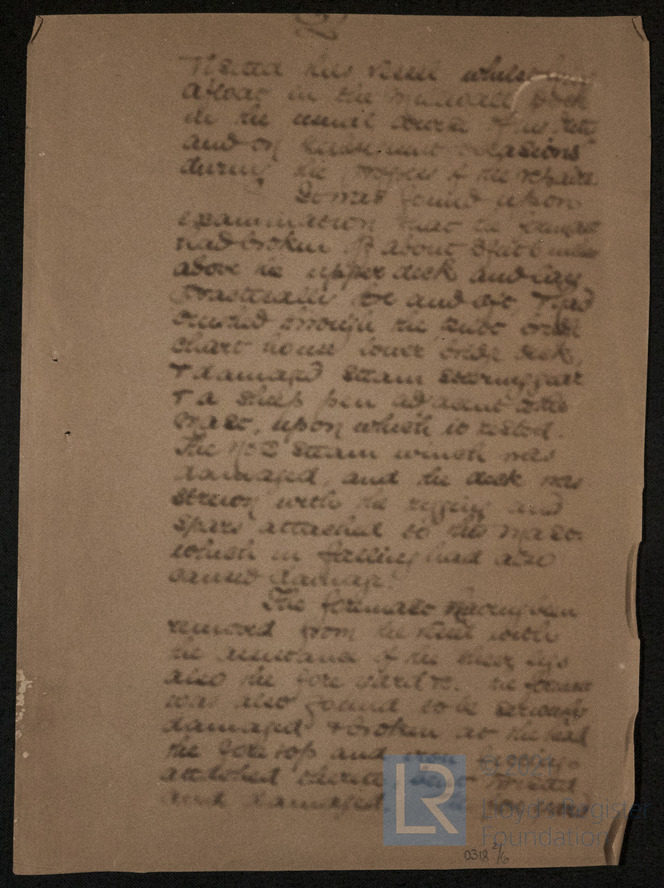 2
Visited this vessel whilst
afloat in the Millwall Dock
in the usual course of his
and on subsequent occasions
during the progress of the repairs.
It was found upon
examination that the foremast
had broken off about 3 feet 6 inches
above the upper deck and lay
fore and aft & had
crushed through the
chart house lower bridge deck,
& damaged steam steering gear
& a sheep pen adjacent to the
mast, upon which it rested.
The No 2 steam winch was
damaged, and the deck was
strewn with the rigging and
spars attached to this mast
which in falling had also
caused damage.
The foremast having been
removed from the vessel with
the assistance of the sheer legs
also the fore yard &c. the
was also found to be seriously
damaged & broken at the
the fore top and iron
attached thereto bent twisted
and damaged.
LR
Lloyd's Register
Foundation
0318 2/6